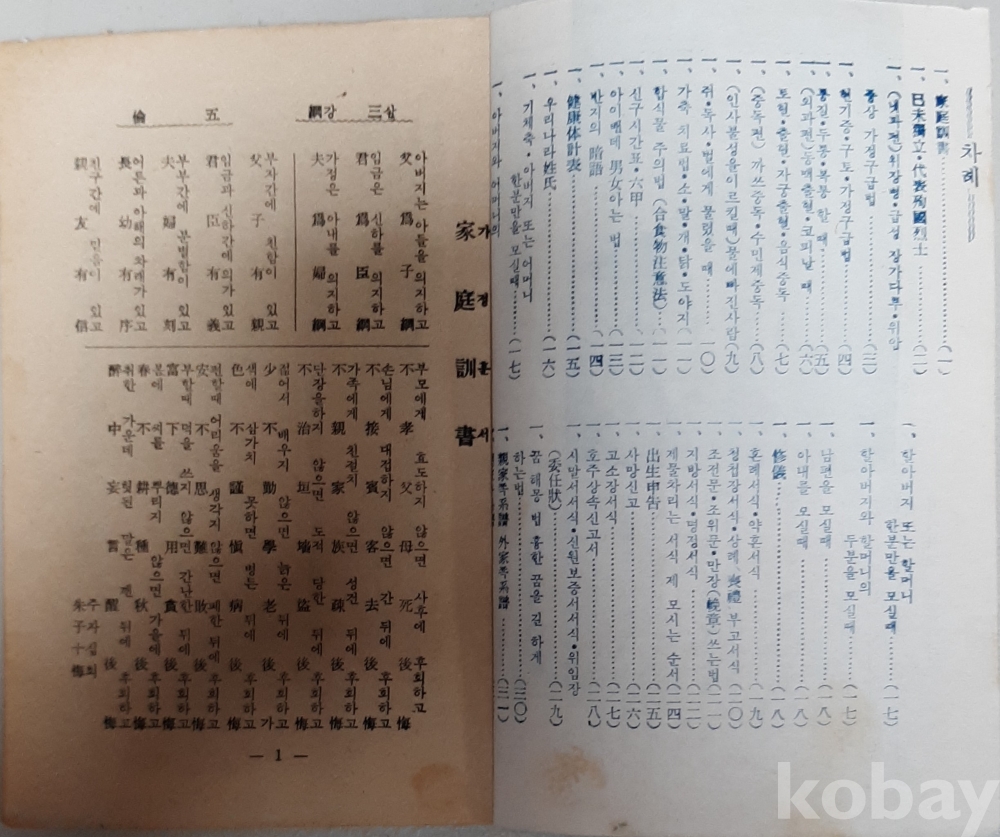 차례
一、家庭訓書……(一)
一、己未獨立・代表殉國烈士……(二)
一、(내과전)위장병・급성 장가다루・위암
중상 가정구급법……(三)
一、현기증・구토・가정구급법……(四)
一、통질・두통・복통 할 때……(五)
一、(외과전)동맥출혈・코피날 때……(六)
一、토혈・출혈・자궁출혈・음식중독……(七)
一、(중독편) 까쓰중독・수면제중독……(八)
一、(인사불성을이르킬때)물에빠진사람(九)
一、쥐・독사・벌에게 물렸을 때……(一〇)
一、가축 치료법・소・말・개・닭・도야지(一一)
一、합식물 주의법(合食物注意法)……(一一)
一、신구시간표・六甲……(一二)
一、아이배테 男女아는 법……(一三)
一、반지의 暗語……(一四)
一、健康体計表……(一五)
一、우리나라姓氏……(一六)
一、기체축・아버지 또는 어머니
한분만을 모실때……(一七)
一、아버지와 어머니의
一、할아버지 또는 할머니
한분만을 모실때……(一七)
一、할아버지와 할머니의
두분을 모실때……(一七)
一、남편을 모실때……(一八)
一、아내를 모실때……(一八)
一、修儀……(一八)
一、혼례서식・약혼서식……(一九)
一、청첩장서식・상례(喪禮)부고서식(二〇)
一、조전문・조위문・만장(輓章)쓰는법(二一)
一、지방서식・명정서식……(二二)
一、제물차리는 서식 제 모시는 순서(二四)
一、出生申告……(二五)
一、사망신고……(二六)
一、고소장서식……(二七)
一、호주상속신고서……(二八)
一、시말서서식・신원보증서서식・위임장
(委任狀)……(二九)
一、꿈 해몽 법 흉한 꿈을 길 하게
하는법……(三〇)
一、親家等系譜 外家等系譜……(三一)
가정훈서
家庭訓書
三삼 강綱
아버지는 아들을 의지하고
父爲子綱
임금은 신하를 의지하고
君爲臣綱
가정은 아내를 의지하고
夫爲婦綱
五倫
부자간에 친함이 있고
父子有親
임금과 신하간에 의가 있고
君臣有義
부부간에 분별함이 있고
夫婦有刻
어른과 아해의 차례가 있고
長幼有序
친구간에 믿음이 있고
親友有信
부모에게 효도하지 않으면 사후에 후회하고
不孝父母死後悔
손님에게 대접하지 않으면 간 뒤에 후회하고
不接賓客去後悔
가족에게 친절치 않으면 성전 뒤에 후회하고
不親家族疎後悔
단장을하지 않으면 도적 당한 뒤에 후회하고
不治垣墻盜後悔
젊어서 배우지 않으면 늙은 뒤에 후회하고
少不勤學老後悔
색에 삼가치 못하면 병든 뒤에 후회하고
色不謹愼病後悔
편할때 어려움을 생각지 않으면 패한 뒤에 후회하고
安不思難敗後悔
부할때 덕을 쓰지 않으면 간난한 뒤에 후회하고
富下德用貧後悔
봄에 씨를 뿌리지 않으면 가을에 후회하고
春不耕種秋後悔
취한 가운데 헛된 말은 깬 뒤에 후회하고
醉中妄言醒後悔
주자십회
朱子十悔
— 1 —
kobay